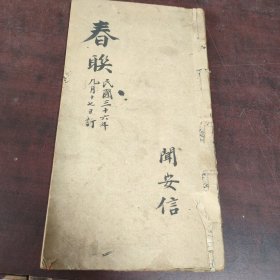 春联
民國三十六年
九月十七日訂
聞安信